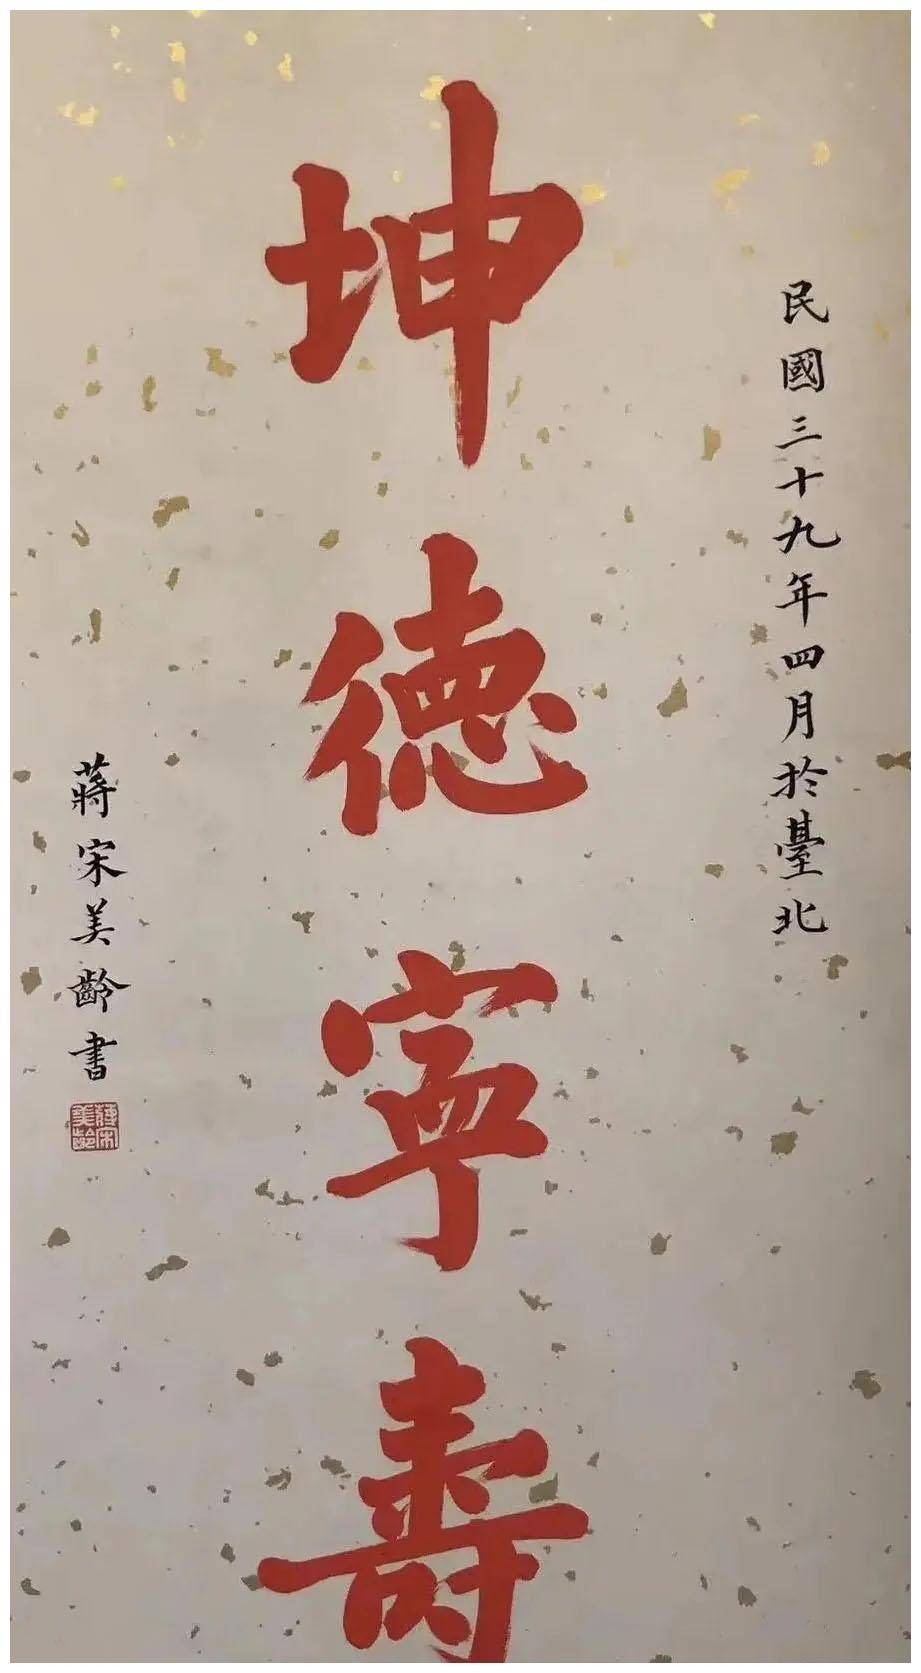 民國三十九年四月於臺北
坤德寧壽
蔣宋美齡書
蔣宋美齡